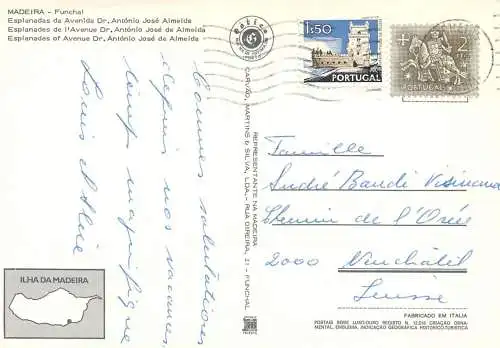 MADEIRA - Funchal
Esplanadas da Avenida Dr. António José Almeida
Esplanades de l'Avenue Dr. António José de Almeida
Esplanades of Avenue Dr. António José de Almeida
1$50
PORTUGAL
2
PORTUGAL
Bonnes salutations
depuis nos vacances,
temps magnifique
Louis
REPRESENTANTE NA MADEIRA
CARVÃO, MARTINS & SILVA, LDA. - RUA DIREITA, 21 - FUNCHAL
Famille
André Bandi
Chemin de l'Orée
2000 Neuchâtel
Suisse
ILHA DA MADEIRA
FABRICADO EM ITALIA